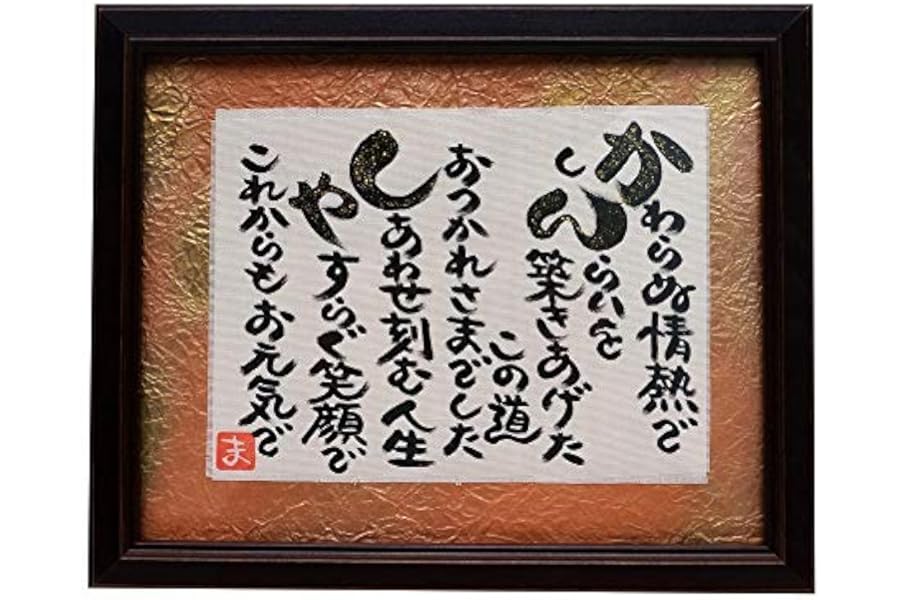 かわらぬ情熱で
しんらいを
築きあげた
この道
おつかれさまでした
しあわせ刻む人生
やすらぐ笑顔で
これからもお元気で
ま